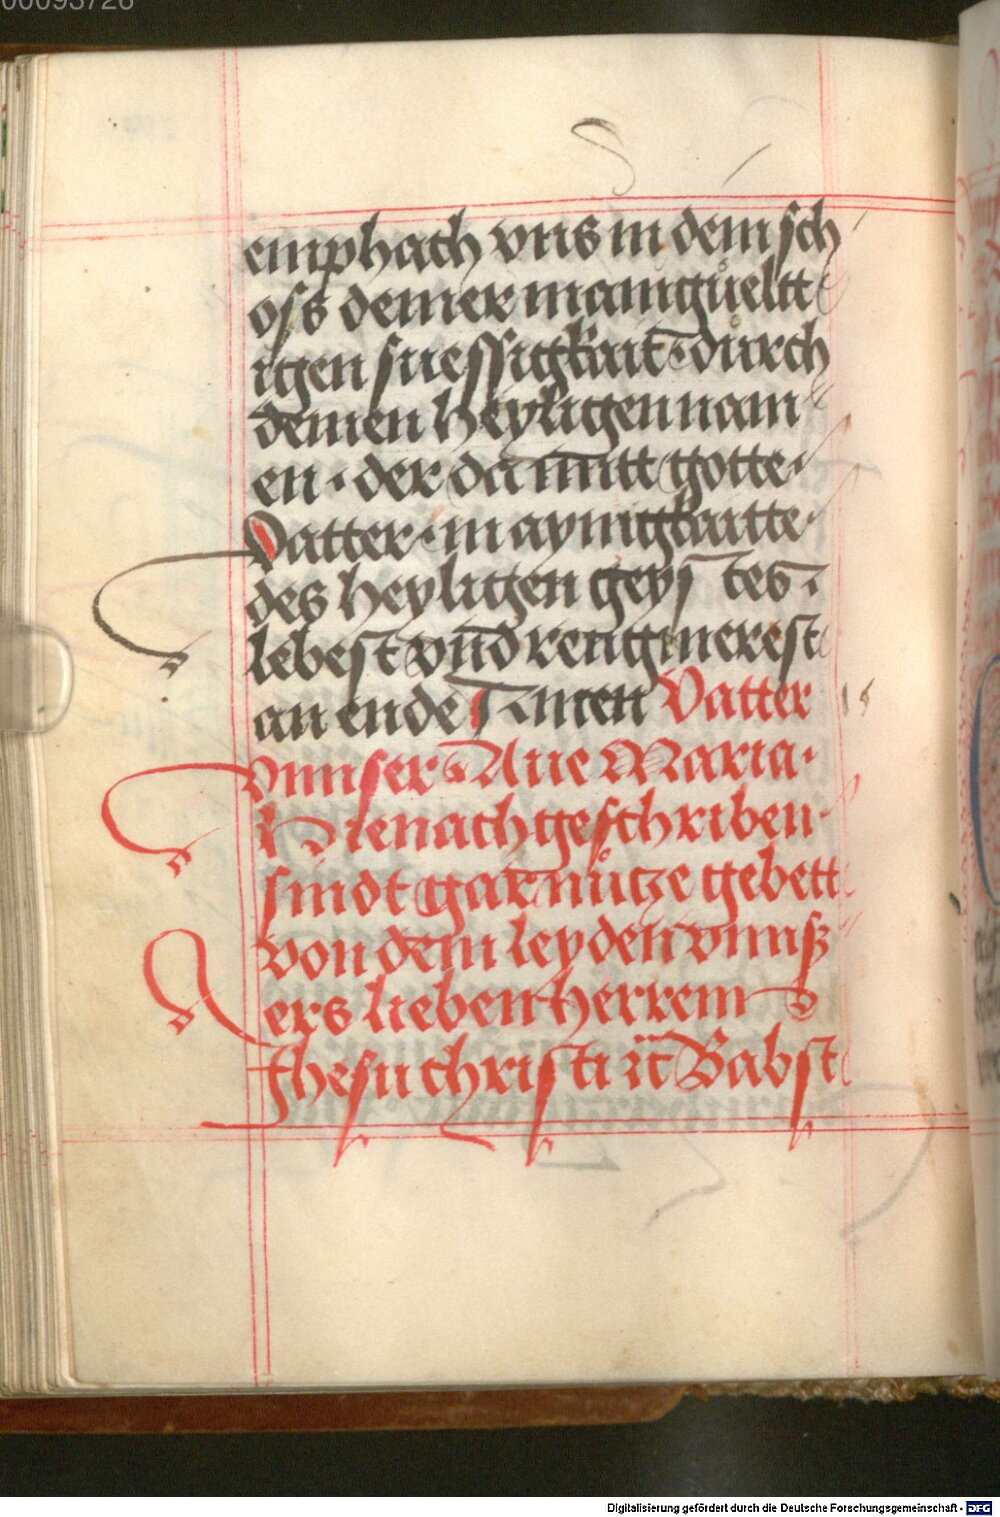 00093726
emphach vns in dem sch
oss deiner manigueltt
igen suessigkait durch
deinen Heyligen nam
en · der da mitt gotte ·
Vatter · in aynigkaitte ·
des Heyligen geystes ·
lebest vnd rengnierest
an ende Amen Vatter
vnnser Aue Maria ·
Hienach geschriben ·
sindt gar nütze gebett
von dem leyden vnnsz
ers lieben Herrenn
Jhesu christi Babst
Digitalisierung gefördert durch die Deutsche Forschungsgemeinschaft - DFG